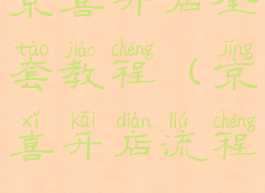 京喜开店全
tào jiào chéng jīng
套教程（京
xǐ kāi diàn liú chéng
喜开店流程